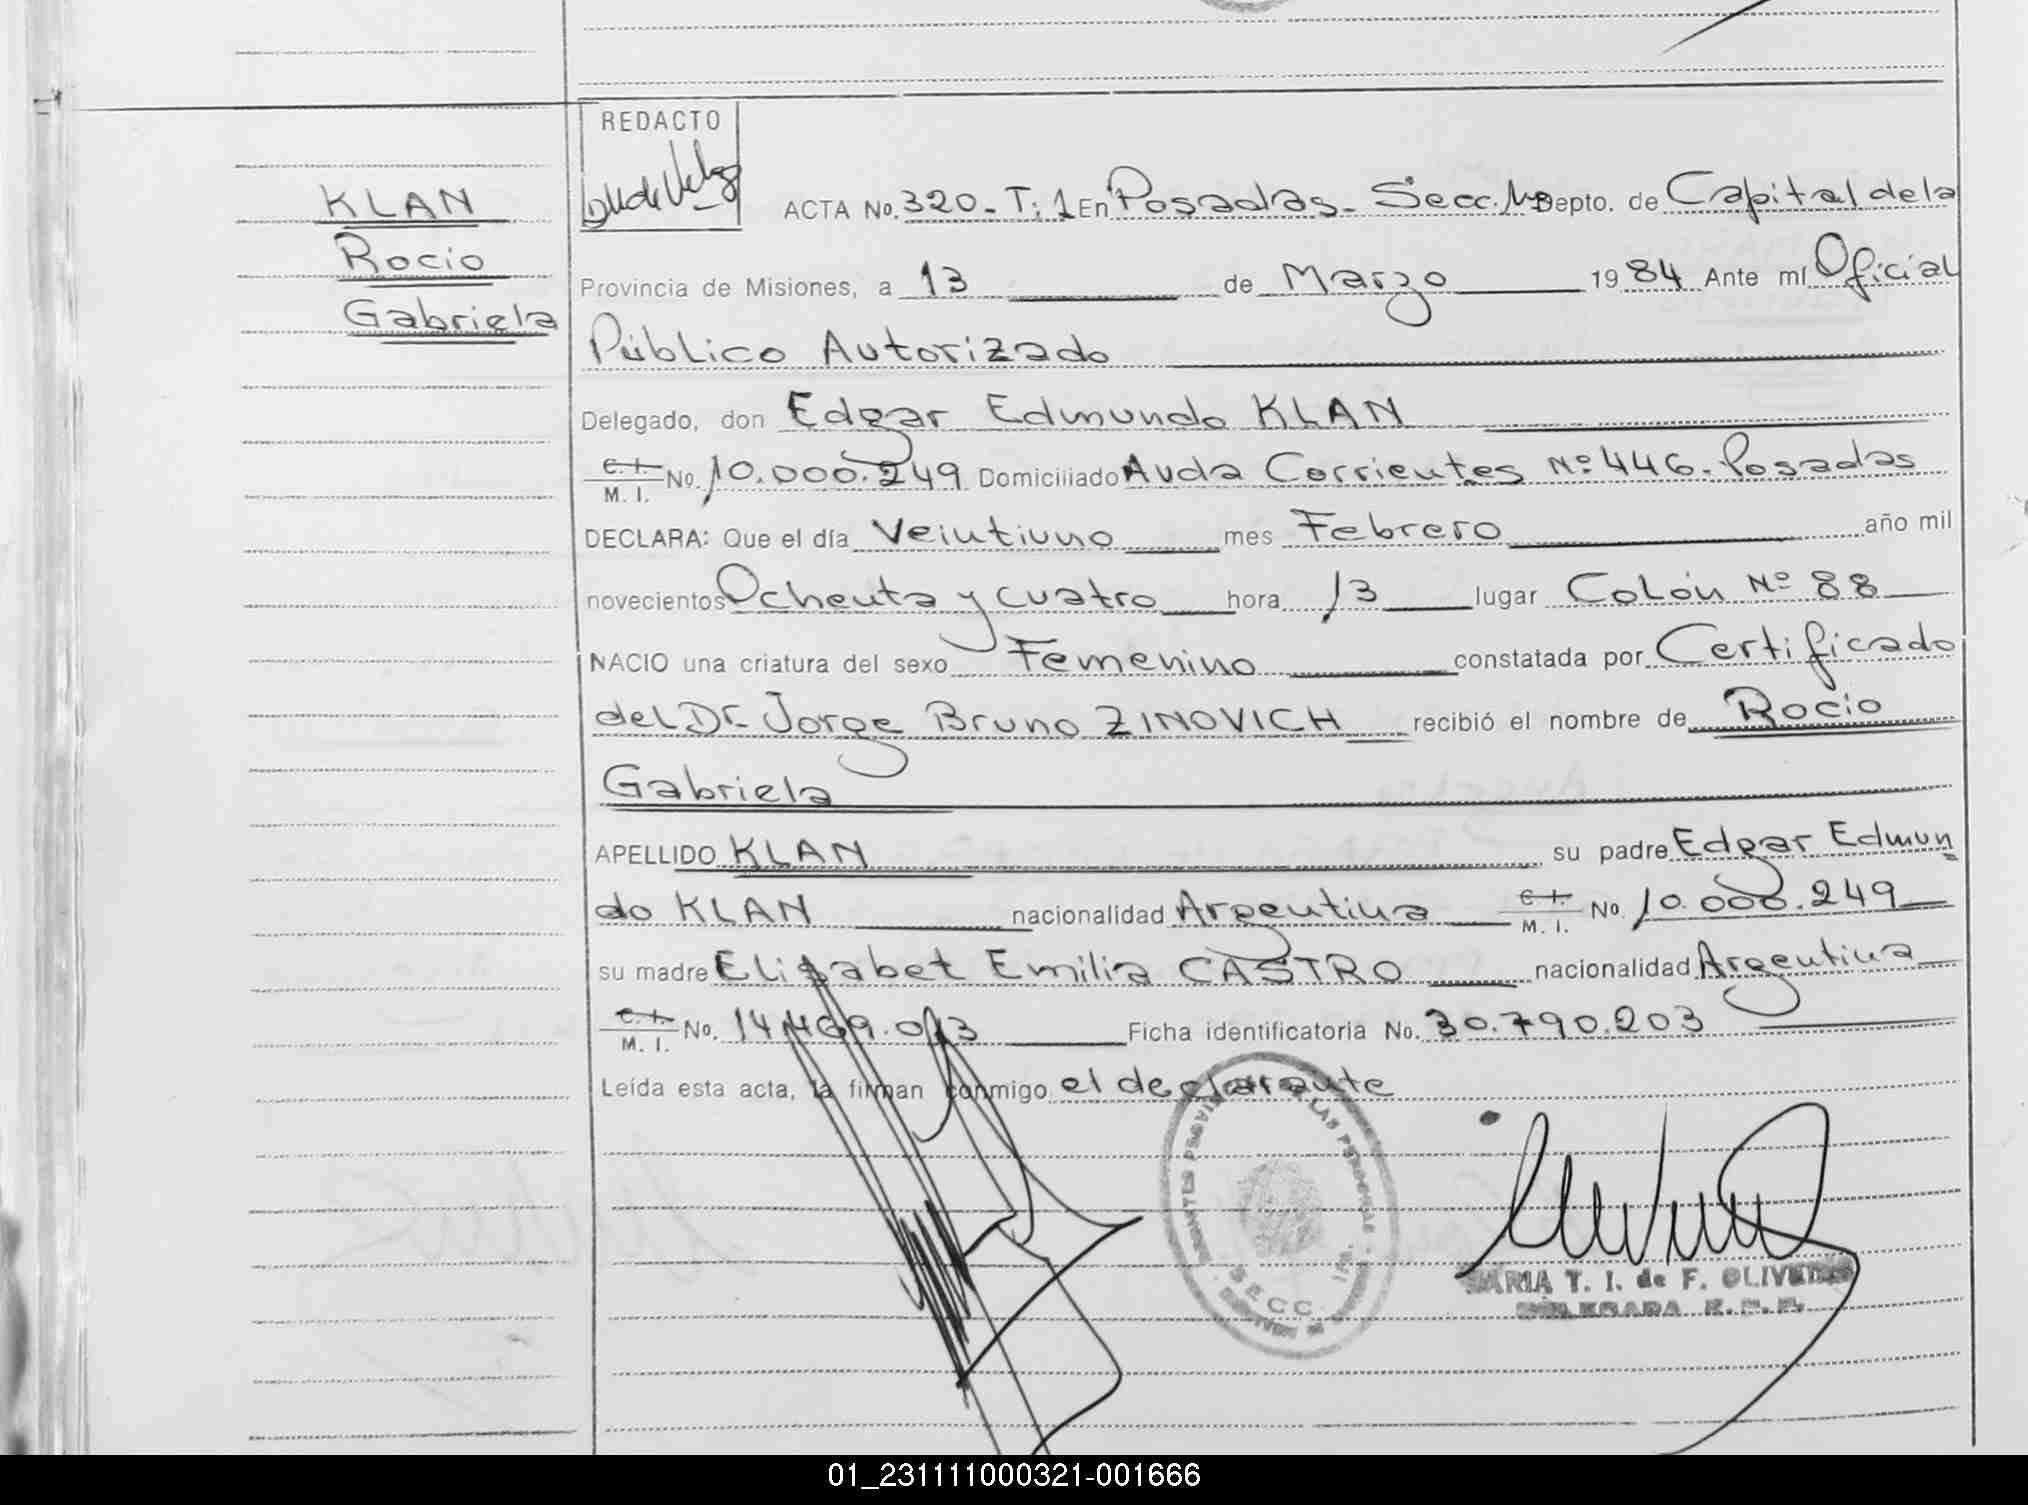 REDACTO
KLAN
Rocio
Gabriela
ACTA No. 320. T: 1 En Posadas. Secc. Depto. de Capital de la
Provincia de Misiones, a 13 de Marzo 1984 Ante mí Oficial
Público Autorizado
Delegado, don Edgar Edmundo KLAN
C. I. M. I. No. 10.000.249 Domiciliado Avda Corrientes Nº 446. Posadas
DECLARA: Que el día Veintiuno mes Febrero año mil
novecientos Ochenta y cuatro hora 13 lugar Colón Nº 88
NACIO una criatura del sexo Femenino constatada por Certificado
del Dr. Jorge Bruno ZINOVICH recibió el nombre de Rocio
Gabriela
APELLIDO KLAN su padre Edgar Edmun
do KLAN nacionalidad Argentina C. I. M. I. No. 10.000.249
su madre Elisabet Emilia CASTRO nacionalidad Argentina
C. I. M. I. No. 14.469.013 Ficha identificatoria No. 30.790.203
Leída esta acta, la firman conmigo el declarante
SECC.
MARIA T. I. de F. OLIVEIRA
DELEGADA R. P. P.
01_231111000321-001666